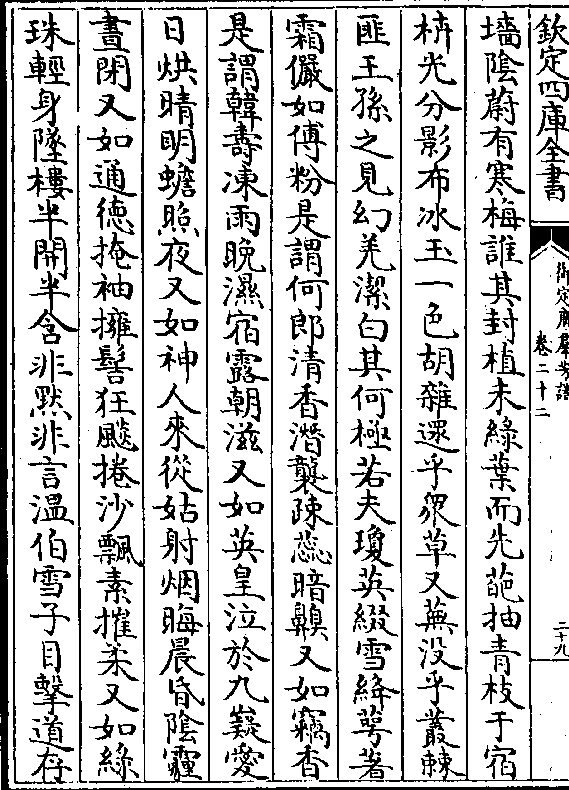 欽定四庫全書
御定廣羣芳譜
卷二十二
二十九
墻陰蔚有寒梅誰其封植未綠葉而先葩抽青枝于宿
枿光分影布冰玉一色胡雜遝乎眾草又蕪没乎叢棘
匪王孫之見幻羌潔白其何極若夫瓊英綴雪絳萼著
霜儼如傅粉是謂何郎清香潛襲疎蕊暗臭又如竊香
是謂韓壽凍雨晚濕宿露朝滋又如英皇泣於九嶷愛
日烘晴明蟾照夜又如神人來從姑射烟晦晨昏陰霾
晝閉又如通德掩袖擁髻狂飈捲沙飄素摧柔又如綠
珠輕身墜樓半開半含非黙非言温伯雪子目擊道存